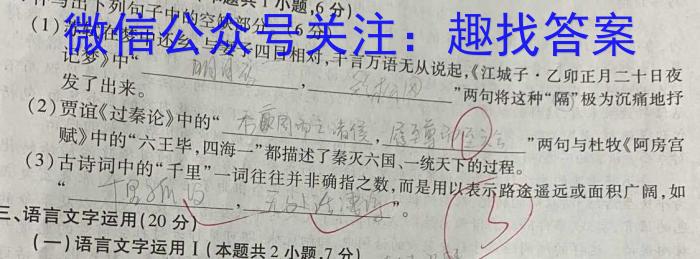 写出下列句子中的空缺部分。(6分)
微信公众号关注：趣找答案
(1)苏轼在梦中还乡,与妻子四目相对,千言万语无从说起,《江城子·乙卯正月二十日夜
记梦》中“ , ”两句将这种“隔”极为沉痛地抒
发了出来。
(2)贾谊《过秦论》中的“ , ”两句与杜牧《阿房宫
赋》中的“六王毕,四海一”都描述了秦灭六国、一统天下的过程。
(3)古诗词中的“千里”一词往往并非确指之数,而是用以表示路途遥远或面积广阔,如
“千里孤坟,无处话凄凉”。
3
三、语言文字运用(20分)
(一)语言文字运用Ⅰ(本题共2小题,7分)